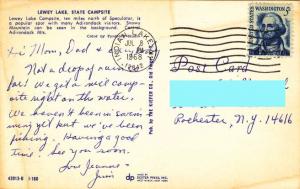 LEWEY LAKE, STATE CAMPSITE
Lewey Lake Campsite, ten miles north of Speculator, is
a popular spot with many Adirondack visitors. Snowy
Mountain can be seen in the background. Central
Adirondack Mts.
Color by
INDIAN LAKE
JUL 8
1968
WASHINGTON 5¢
Hi Mom, Dad &
Not a drop of rain
yet! We've got a nice camp-
site right on the water.
We haven't been in swim-
ming yet but we've been
fishing. Having a good
time. See you soon.
Love Jeanne &
Jim
Post Card
Rochester, N.Y. 14616
PUB. BY THE
dp
DEXTER PRESS, INC.
WEST NYACK, NEW YORK